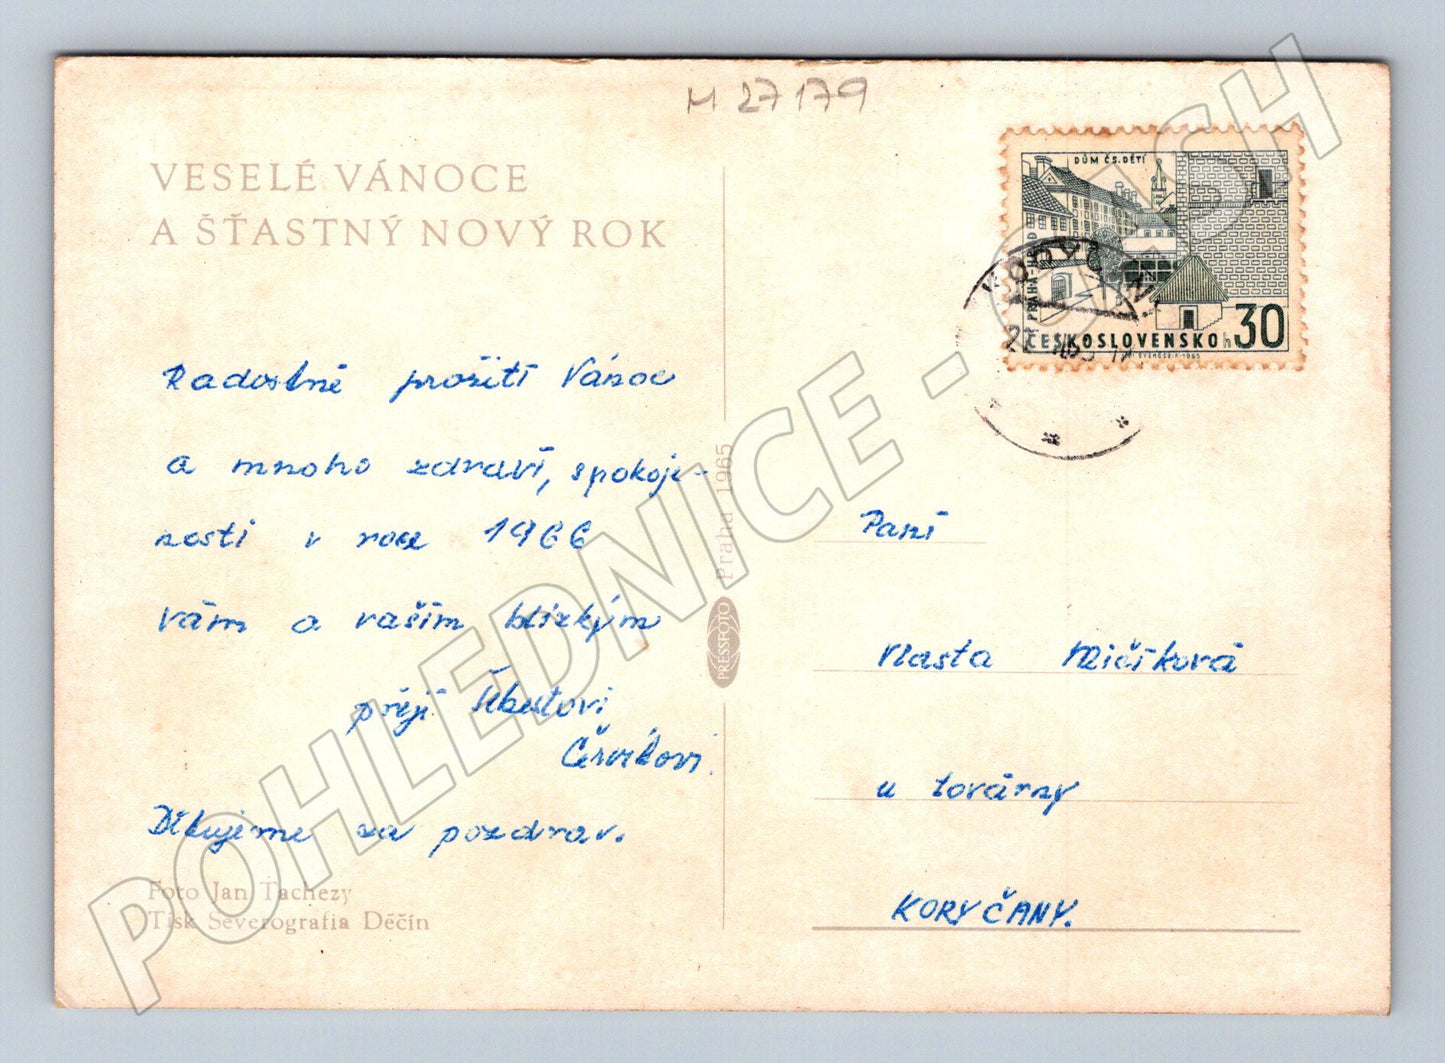 M 27179
VESELÉ VÁNOCE
A ŠŤASTNÝ NOVÝ ROK
Radostné prožití Vánoc
a mnoho zdraví, spokoje-
nosti v roce 1966
vám a vašim blízkým
přejí
Červíkovi
Děkujeme za pozdrav.
Foto Jan Tachezy
Tisk Severografia Děčín
PRESSFOTO Praha 1965
DŮM ČS. DĚTÍ
PRAHA-HRAD
ČESKOSLOVENSKO h 30
Paní
Vlasta Mičíková
u továrny
KORYČANY.
POHLEDNICE - SBICH